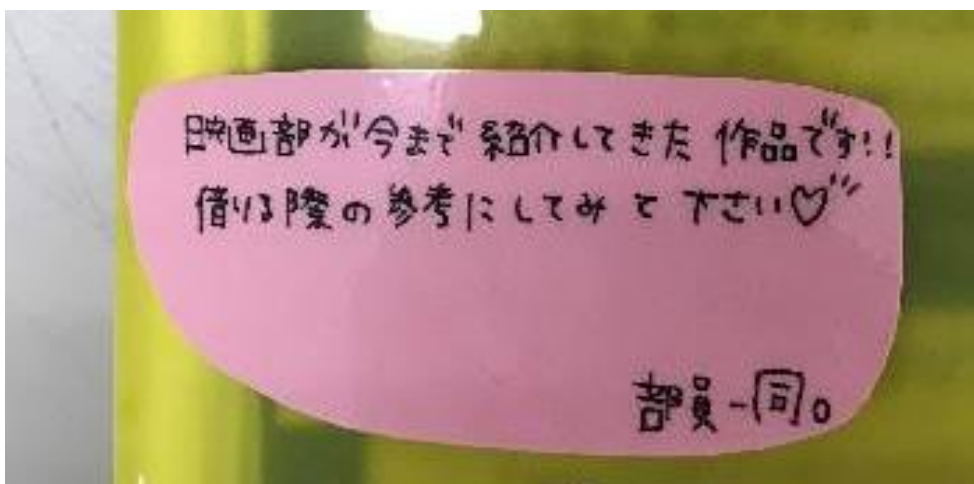 映画部が今まで紹介してきた作品です!!
借りる際の参考にしてみて下さい♡
部員一同。